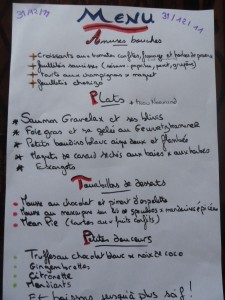 31/12/11 MENU 31/12/11
Amuses bouches
+ Croissants aux tomates confites, fromage et
+ feuilletés saucisses (
+ Tarte aux champignons x magret
+ feuilletés chorizo
Plats
* Saumon Gravelax et ses blinis
* Foie gras et sa gelée au Gewurztraminer
* Petits boudins blancs aigre doux et flambés
* Magrets de canard séchés aux baies x aux herbes
* Escargots
Farandoles de desserts
Mousse au chocolat et piment d'espelette
Mousse au mascarpone sur lit de spéculoos x mandarines épicées
Mean Pie (tartes aux fruits confits)
Petites douceurs
Truffes au chocolat blanc x noix de coco
Gingembrettes
Citronette
Mendiants
Et buvons jusqu'à plus soif !